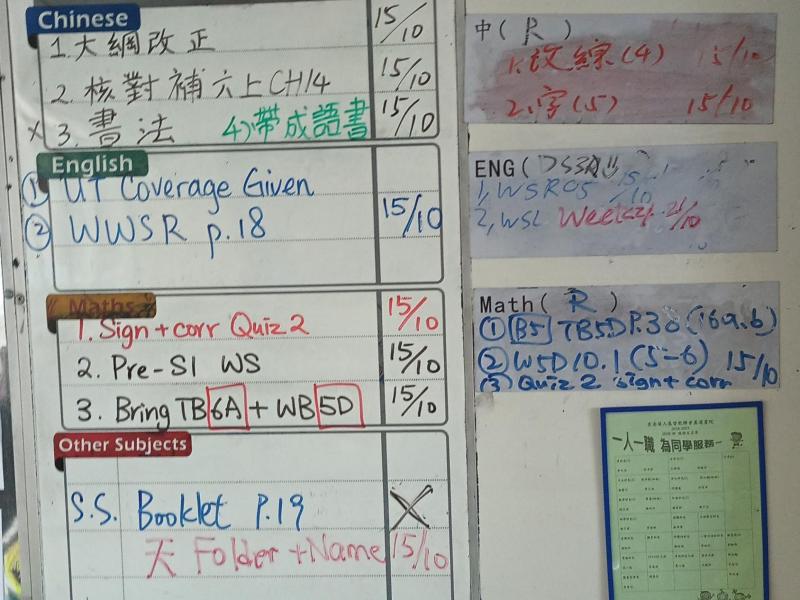 Chinese
1. 大綱改正 15/10
2. 核對補六上CH14 15/10
x 3. 書法 4)帶成語書 15/10
English
① UT Coverage Given
② WWSR p.18 15/10
Maths
1. Sign + corr Quiz 2 15/10
2. Pre-S1 WS 15/10
3. Bring TB 6A + WB 5D 15/10
Other Subjects
S.S. Booklet P.19 X
天 Folder + Name 15/10
中( R )
1. 改綜(4) 15/10
2. 字(5) 15/10
ENG(
1, WSR05 15/10
2, WSL Week21 21/10
Math( R )
① B5 TB5D P.38 (16a.b)
② W5D 10.1 (5-6) 15/10
(3) Quiz 2 sign + corr
一人一職 為同學服務